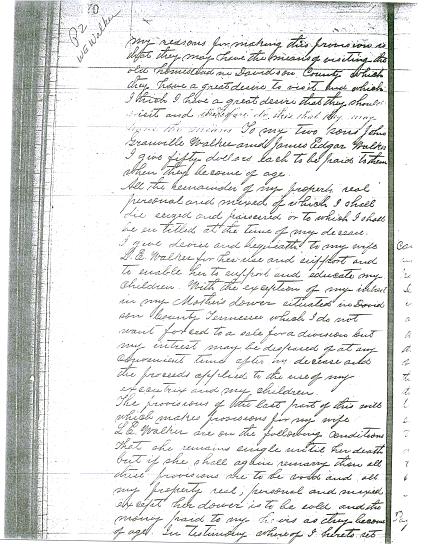 P2 TO
W E Walker
my reasons for making this provision is
that they may have the means of visiting the
old homestead in Davidson County which
they have a great desire to visit and which
I think I have a great desire that they should
visit and therefore do this that they may
have the means To my two sons John
Granville Walker and James Edgar Walker
I give fifty dollars each to be paid to them
when they become of age.
All the remainder of my property real
personal and mixed of which I shall
die seized and possessed or to which I shall
be entitled at the time of my decease.
I give devise and bequeath to my wife
L. E. Walker for her use and support and
to enable her to support and educate my
children. With the exception of my interest
in my Mother's dower situated in David
son County Tennessee which I do not
want forced to a sale for a division but
my intrest may be disposed of at any
convenient time after my decease and
the proceeds applied to the use of my
executrix and my children.
The provisions of the last part of this will
which makes provisions for my wife
L. E. Walker are on the following conditions
that she remains single until her death
but if she shall again remarry then all
these provisions are to be void and all
my property real, personal and mixed
except her dower is to be sold and the
money paid to my heirs as they become
of age. In testimony whereof I hereto set